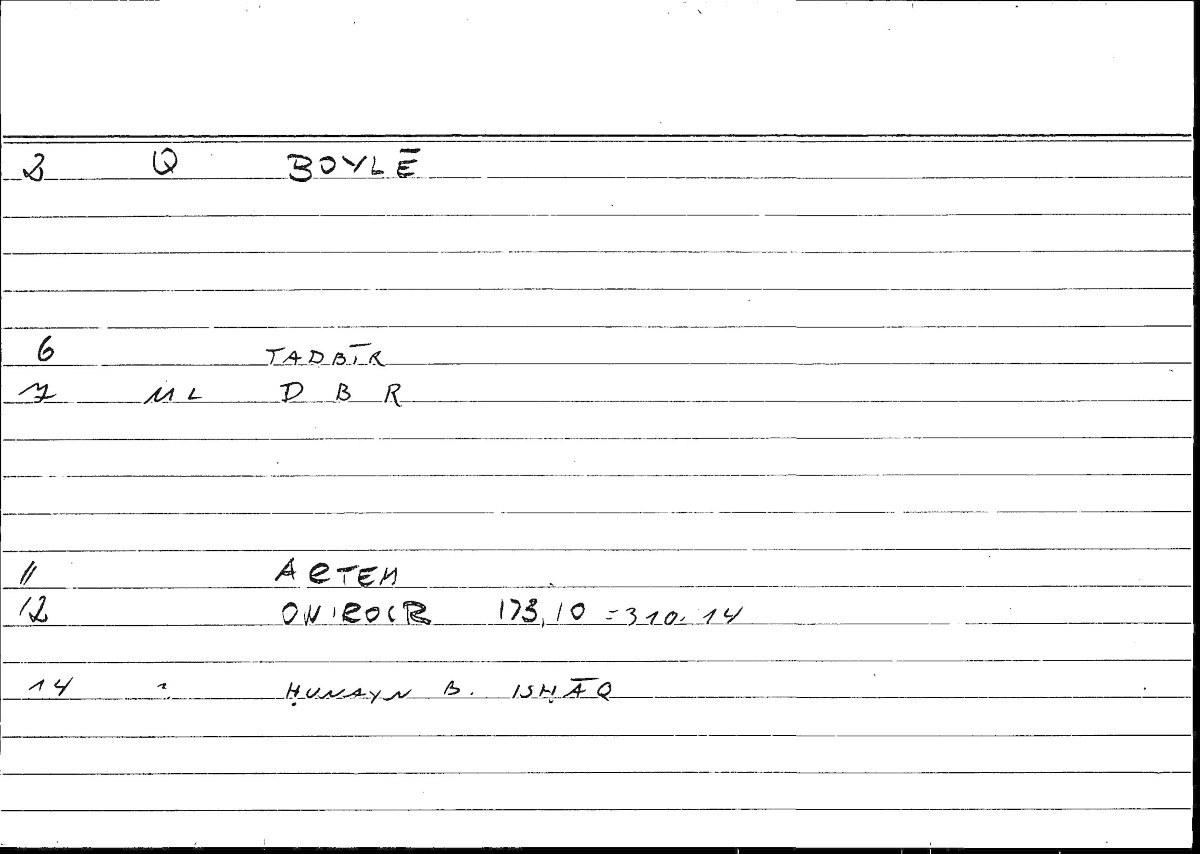 2 Q BOYLĒ
6 TADBĪR
7 ML D B R
11 ARTEM
12 ONIROCR 173,10 = 310.14
14 HUNAYN B. ISḤĀQ